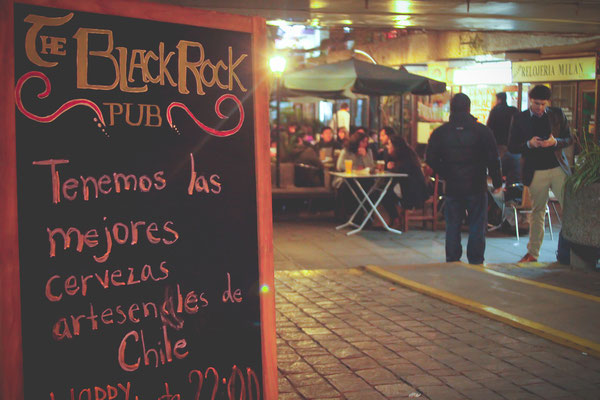 The BlackRock
PUB
Tenemos las
mejores
cervezas
artesenales de
Chile
HAPPY 22:00
RELOJERIA MILAN